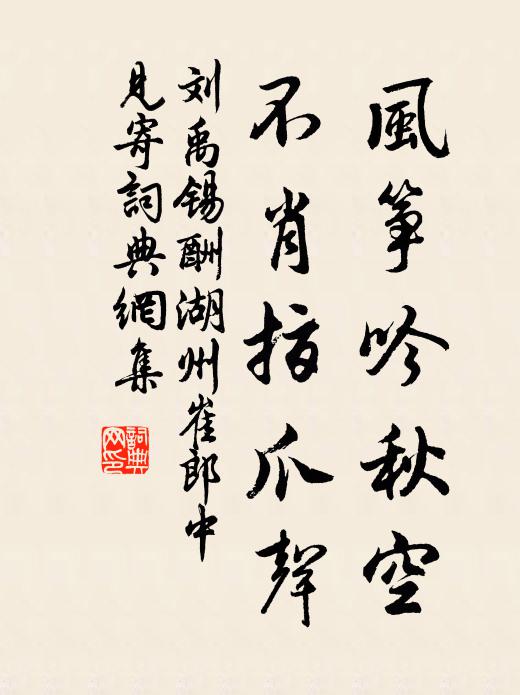 風筝吟秋空
不肖指爪聲
刘禹锡酬湖州崔郎中
見寄詞典網集
詞典
网印